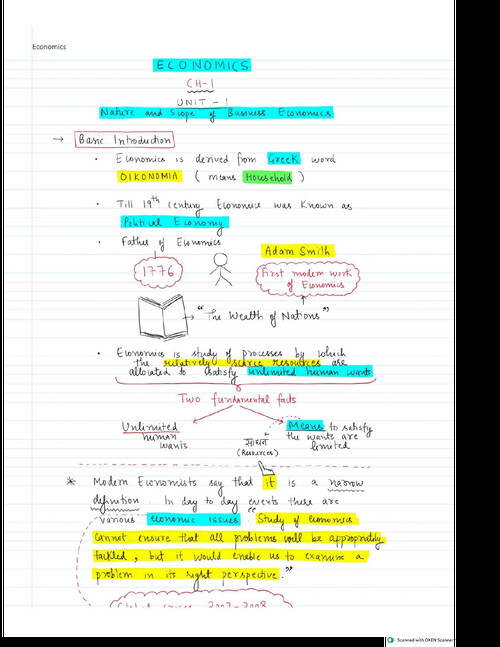 Economics
ECONOMICS
CH-1
UNIT-1
Nature and Scope of Business Economics
→ Basic Introduction
• Economics is derived from Greek word
OIKONOMIA ( means Household )
• Till 19th century Economics was known as
Political Economy
• Father of Economics
Adam Smith
1776
First modern work
of Economics
→ "The Wealth of Nations"
• Economics is study of processes by which
the relatively scarce resources are
allocated to satisfy unlimited human wants
Two fundamental facts
Unlimited
human
wants
Means to satisfy
the wants are
limited
साधन
(Resources)
* Modern Economists say that it is a narrow
definition. In day to day events there are
various economic issues. "Study of Economics
cannot ensure that all problems will be appropriately
tackled, but it would enable us to examine a
problem in its right perspective."
2007-2008
Scanned with OKEN Scanner